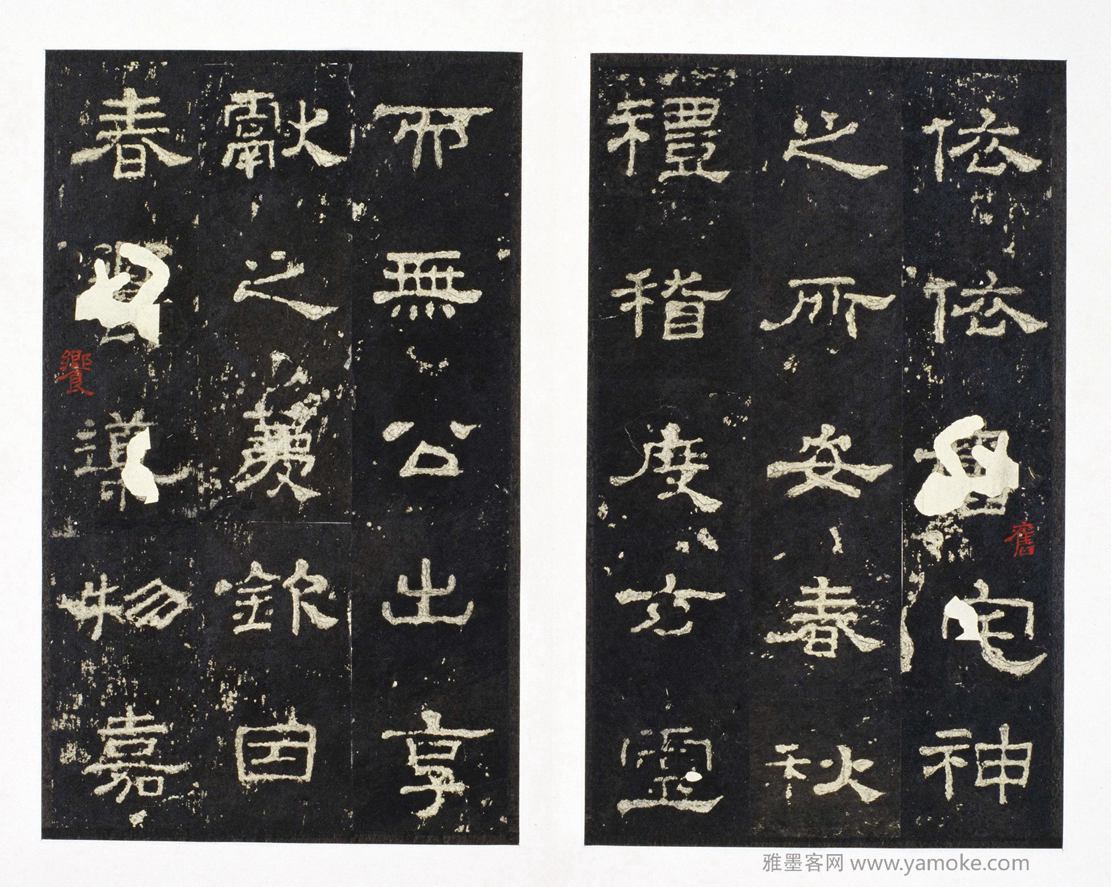 依依舊宅神
之所安春秋
禮稽度玄靈
而無公出享
獻之薦欽因
春饗導物嘉
雅墨客网 www.yamoke.com